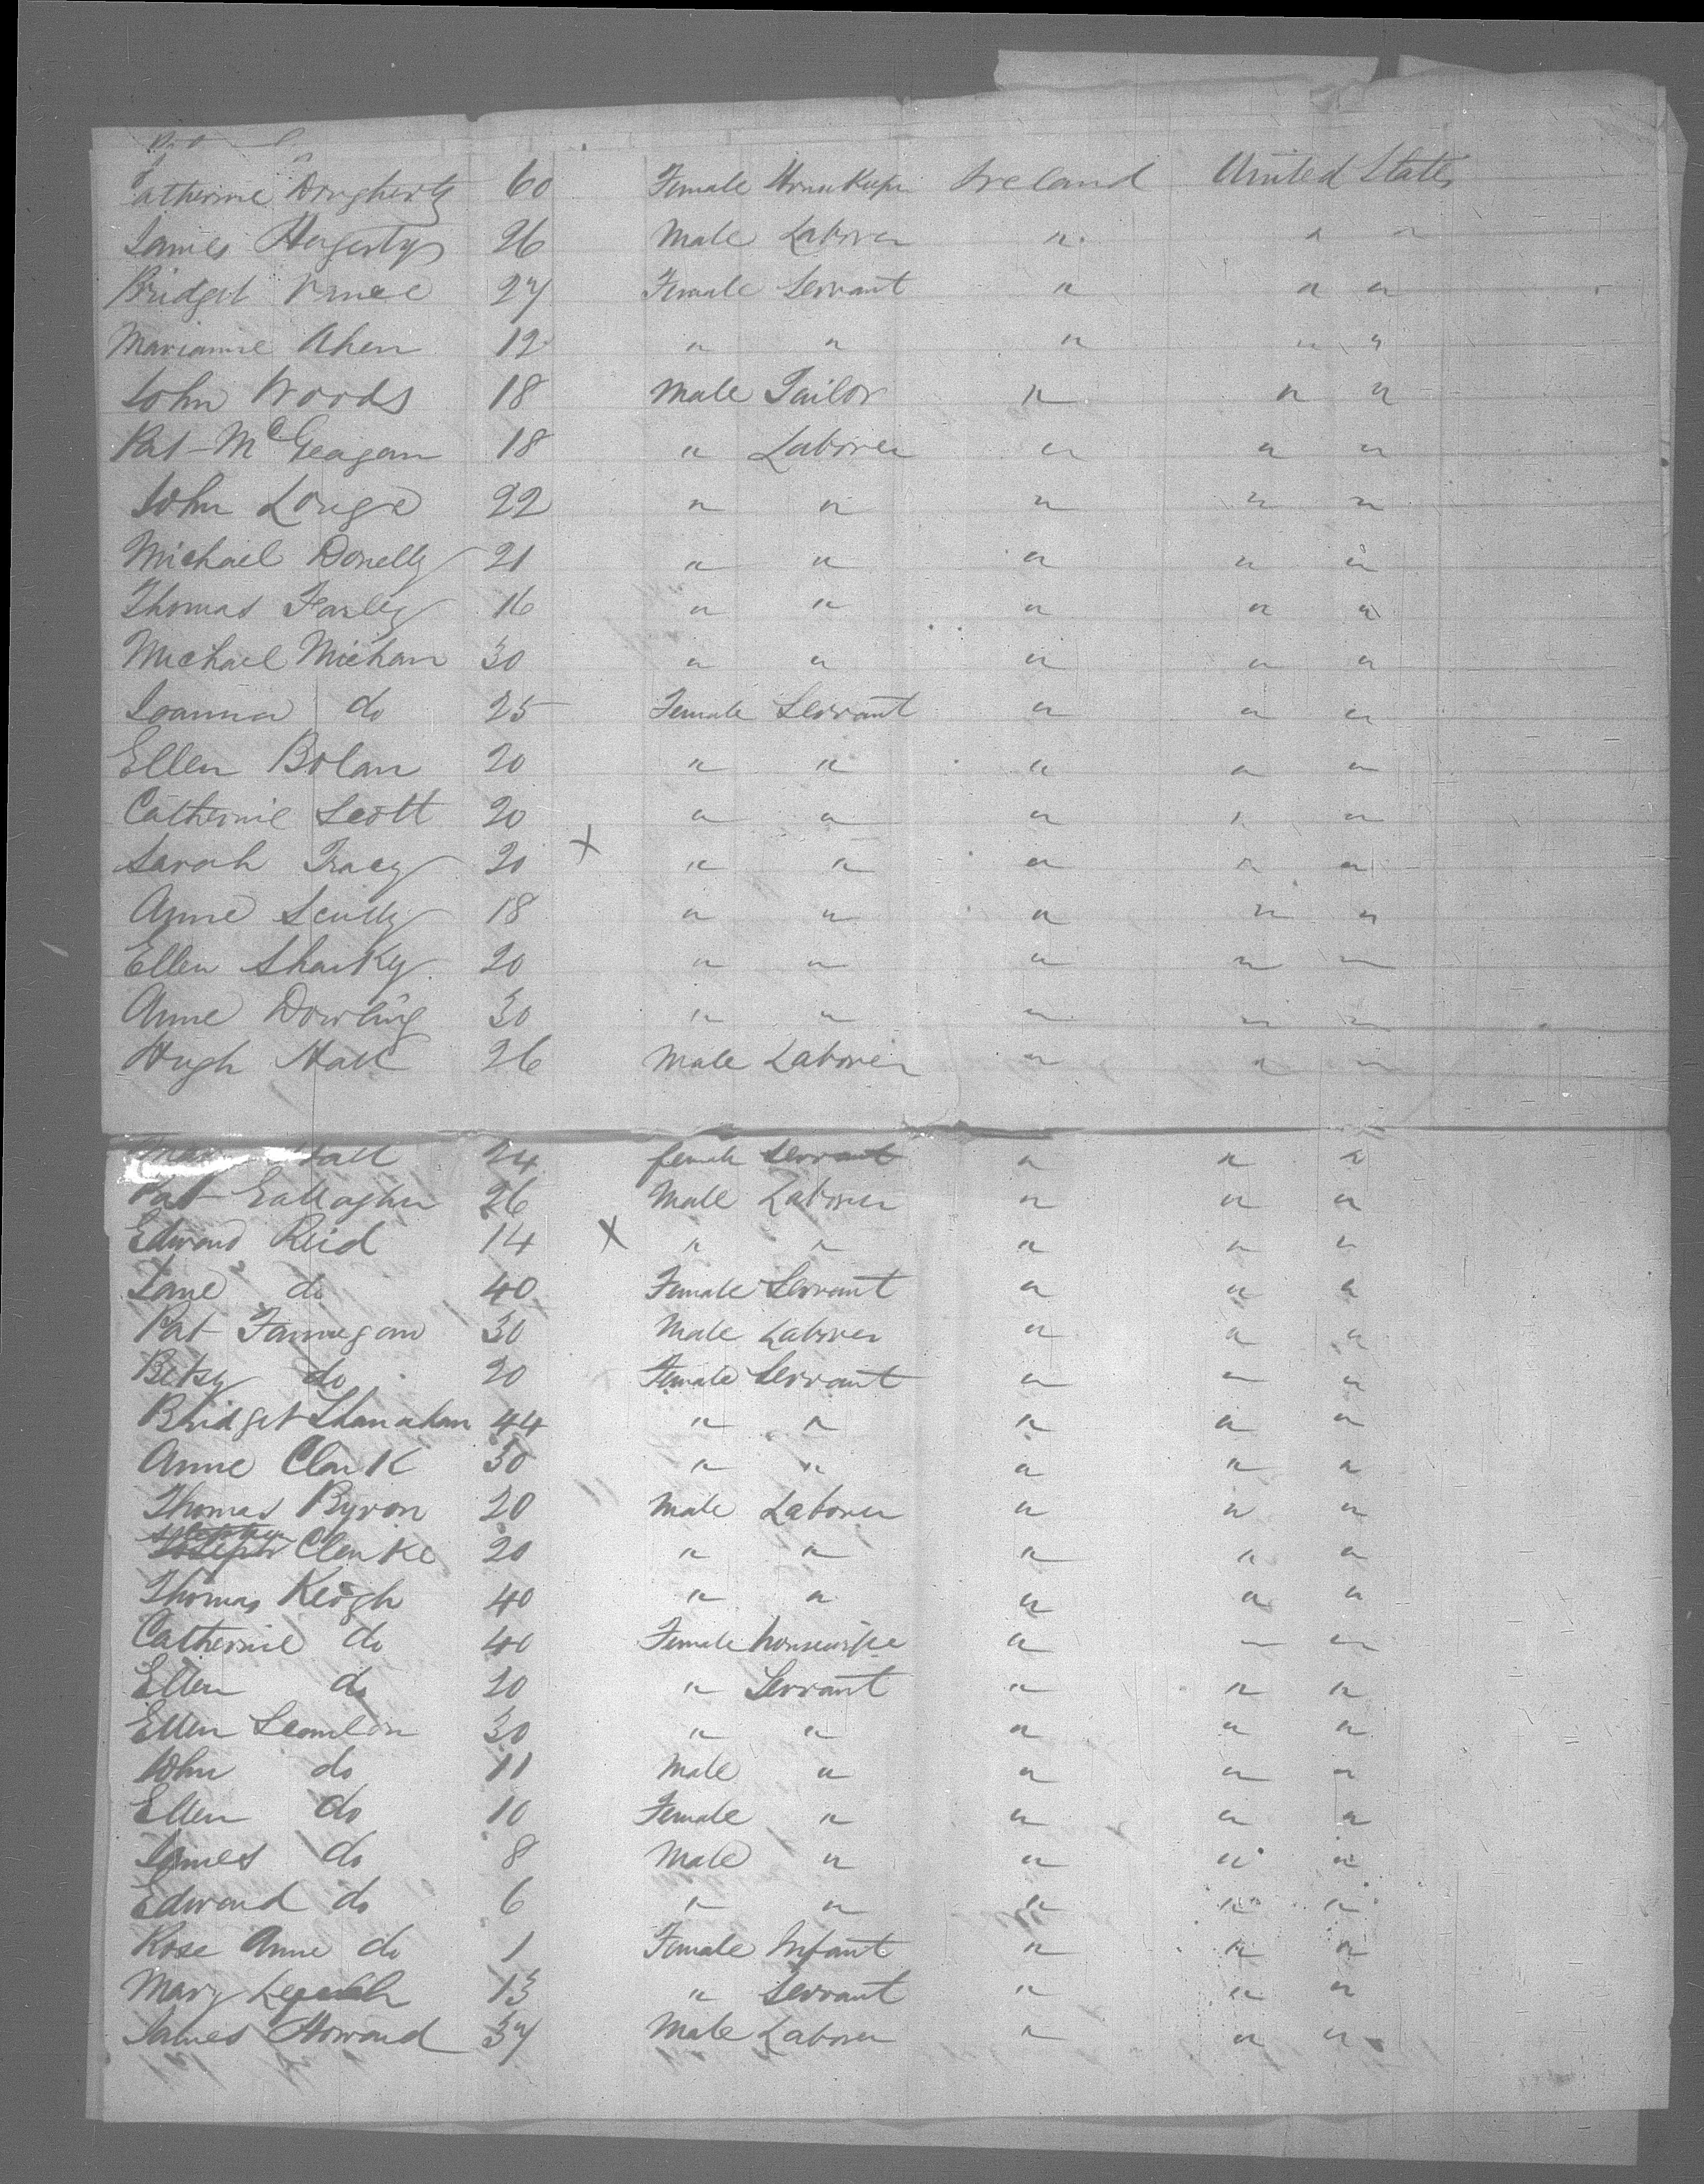 Catherine Dougherty 60 Female House Keeper Ireland United States
James Hagerty 26 Male Laborer " " "
Bridget 27 Female Servant " " "
Marianne Ahern 12 " " " " "
John Woods 18 Male Tailor " " "
Pat McGeagan 18 " Laborer " " "
John Longe 22 " " " " "
Michael Donelly 21 " " " " "
Thomas Farley 16 " " " " "
Michael Miehan 30 " " " " "
Joanna do 25 Female Servant " " "
Ellen Bolan 20 " " " " "
Catherine Scott 20 " " " " "
Sarah Tracy 20 X " " " " "
Anne Scully 18 " " " " "
Ellen Sharky 20 " " " " "
Anne Dowling 30 " " " " "
Hugh Hall 26 Male Laborer " " "
Hall 24 female Servant " " "
Pat Gallagher 26 Male Laborer " " "
Edward Reid 14 X " " " " "
Jane do 40 Female Servant " " "
Pat Fannegan 30 Male Laborer " " "
Betsy do 20 Female Servant " " "
Bridget Shanahan 44 " " " " "
Anne Clark 30 " " " " "
Thomas Byron 20 Male Laborer " " "
Clarke 20 " " " " "
Thomas Keogh 40 " " " " "
Catherine do 40 Female housewife " " "
Ellen do 20 " Servant " " "
Ellen Scanlon 30 " " " " "
John do 11 Male " " " "
Ellen do 10 Female " " " "
James do 8 Male " " " "
Edward do 6 " " " " "
Rose Anne do 1 Female Infant " " "
Mary 13 " Servant " " "
James Howard 37 Male Laborer " " "